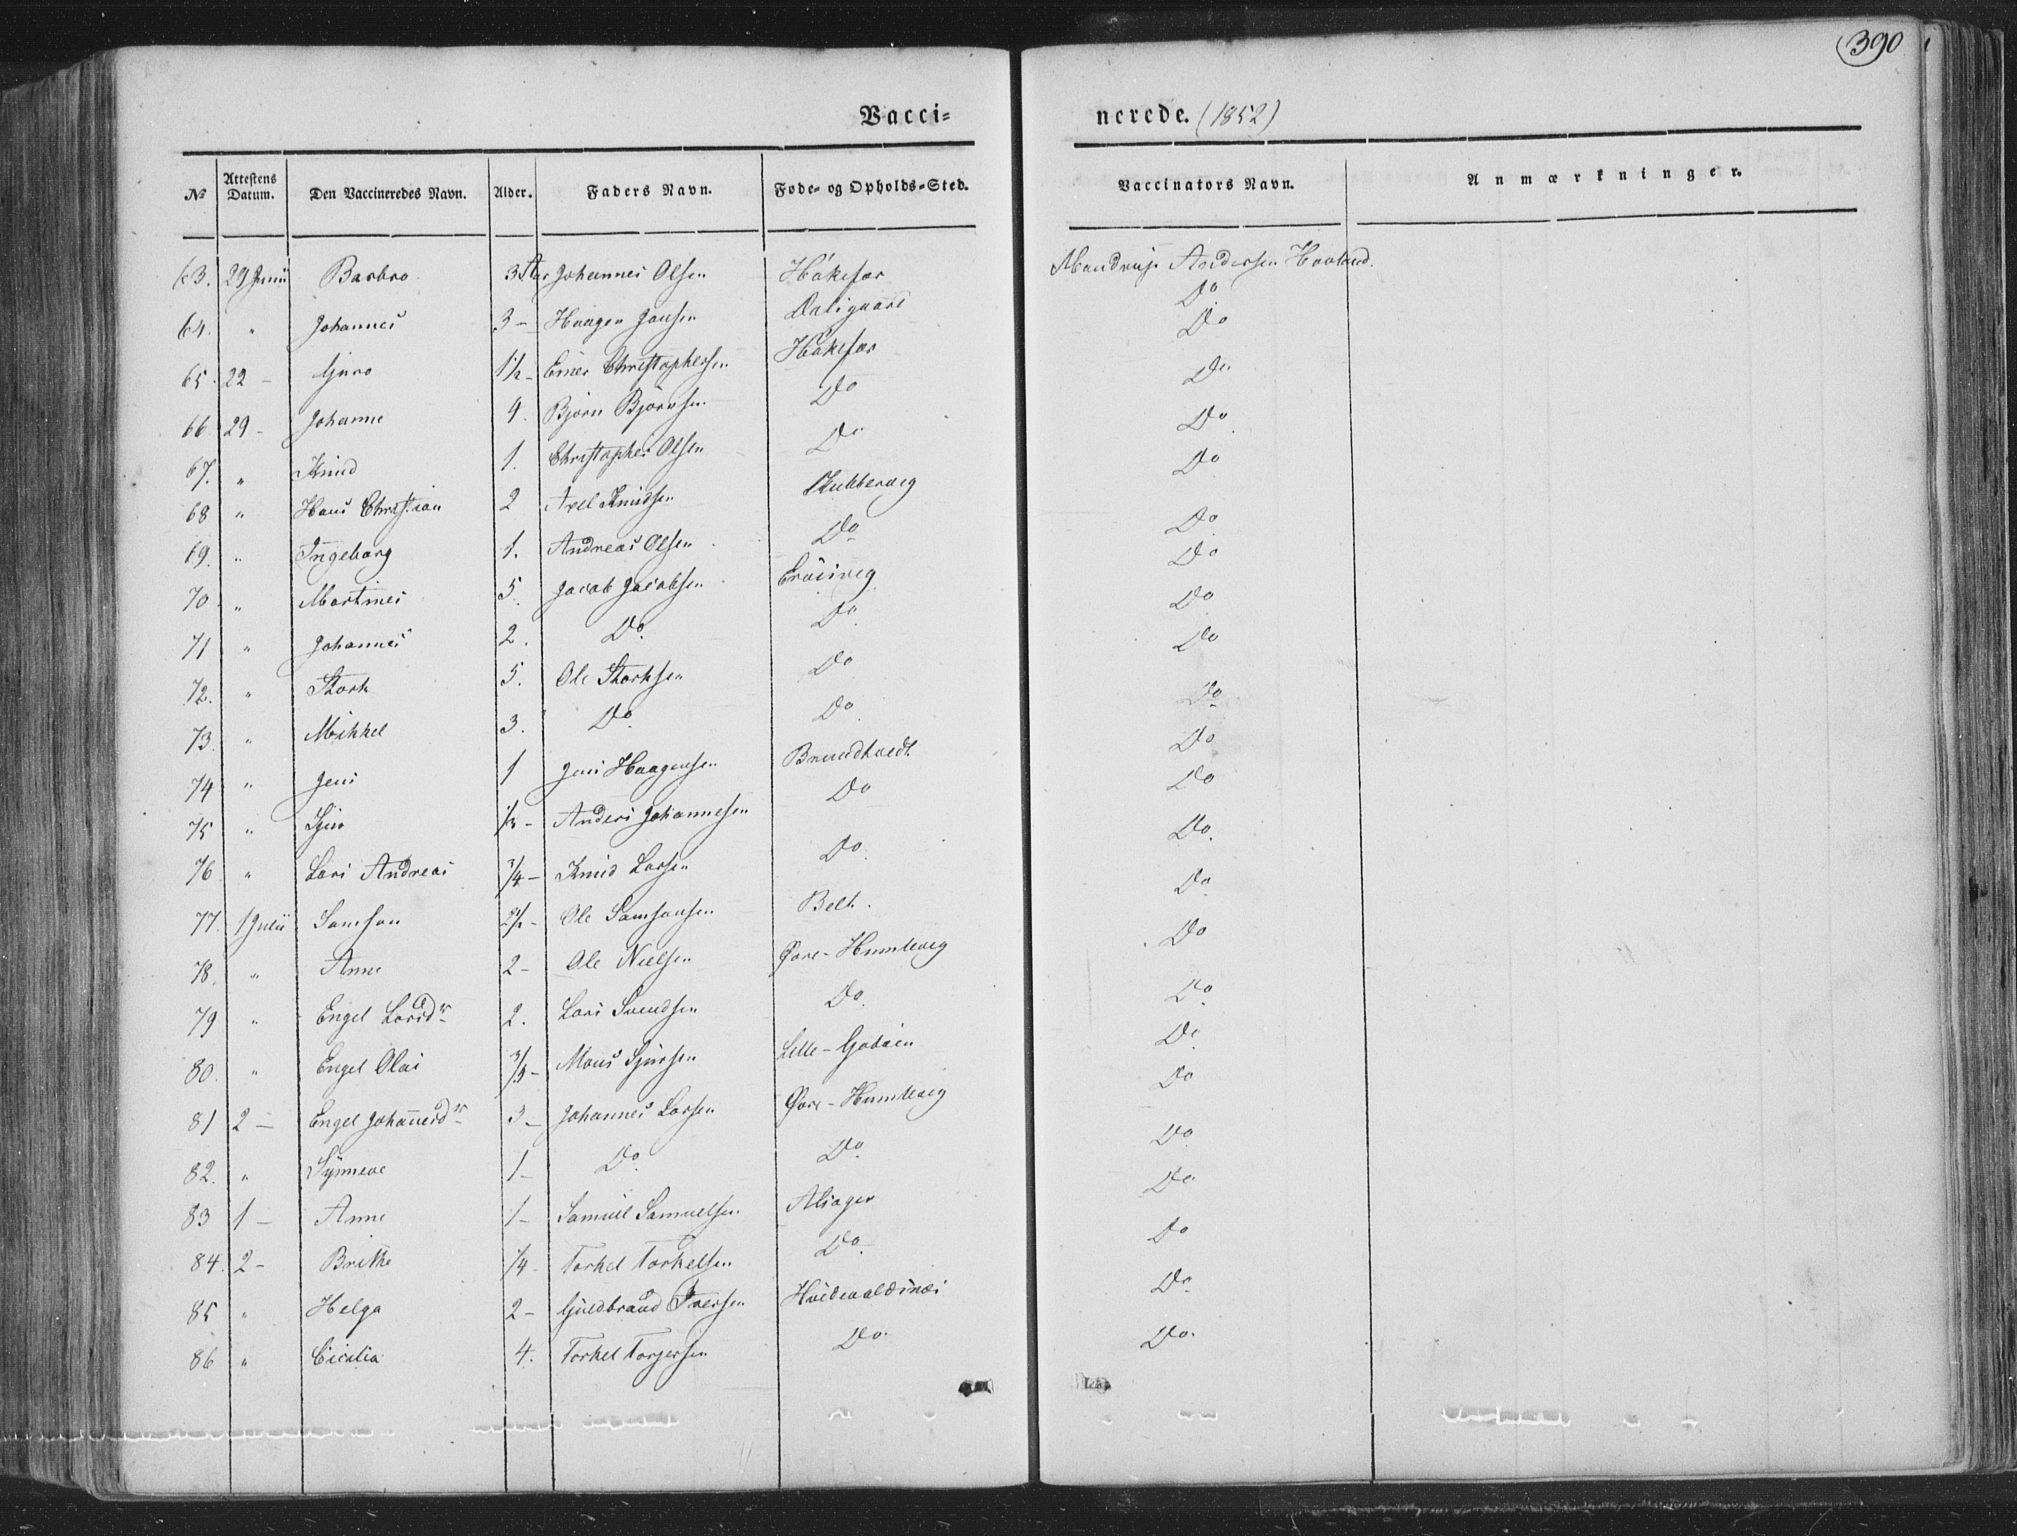 390
Vacci-nerede. (1852)
№ Attestens Datum. Den Vaccineredes Navn. Alder. Faders Navn. Føde- og Opholds-Sted. Vaccinators Navn. Anmærkninger.
63. 29 Junii Barbro 3 Aar Johannes Olsen Håkefær Mandrup Andersen Hovland.
64. " Johannes 3 - Haagen Jansen Do
65. 22 - Guro 1 1/2 - Christophersen Håkefær Do
66. 29 - Johanne 4. Björn Björnsen Do Do
67. " Knud 1. Christopher Olsen Do Do
68 " Hans Christian 2 Axel Knudsen Do
69. " Ingeborg 1. Andreas Olsen Do Do
70. " Martines 5. Jacob Jacobsen Do
71 " Johannes 2. Do. Do. Do
72. " Stork 5. Ole Storksen Do Do
73. " Mikkel 3. Do. Do. Do
74 " Jens 1 Jens Haagensen Brundtvedt Do
75 " Sjur Anders Johannesen Do Do
76 " Lars Andreas 3/4 - Knud Larsen Do. Do.
77. 1 Julii Samson 2 1/2 - Ole Samsonsen Belt. Do
78. " Anne 2 - Ole Nielsen Øvre-Humlevig Do
79 " Engel Larsdr 2. Lars Svendsen Do. Do
80. " Engel Olai Mons Sjursen Lille-Godøen Do
81 2 - Engel Johannesdr 3 - Johannes Larsen Øvre-Humlevig Do
82. " Synneve 1 - Do. Do. Do
83 1 - Anne 1 - Samuel Samuelsen Alsager Do
84. 2 - Brithe 1/4 - Torkel Torkelsen Do. Do
85 " Helga 2 - Guldbrand Iversen Do.
86 " Cicilia 4. Torkel Torgersen Do. Do.